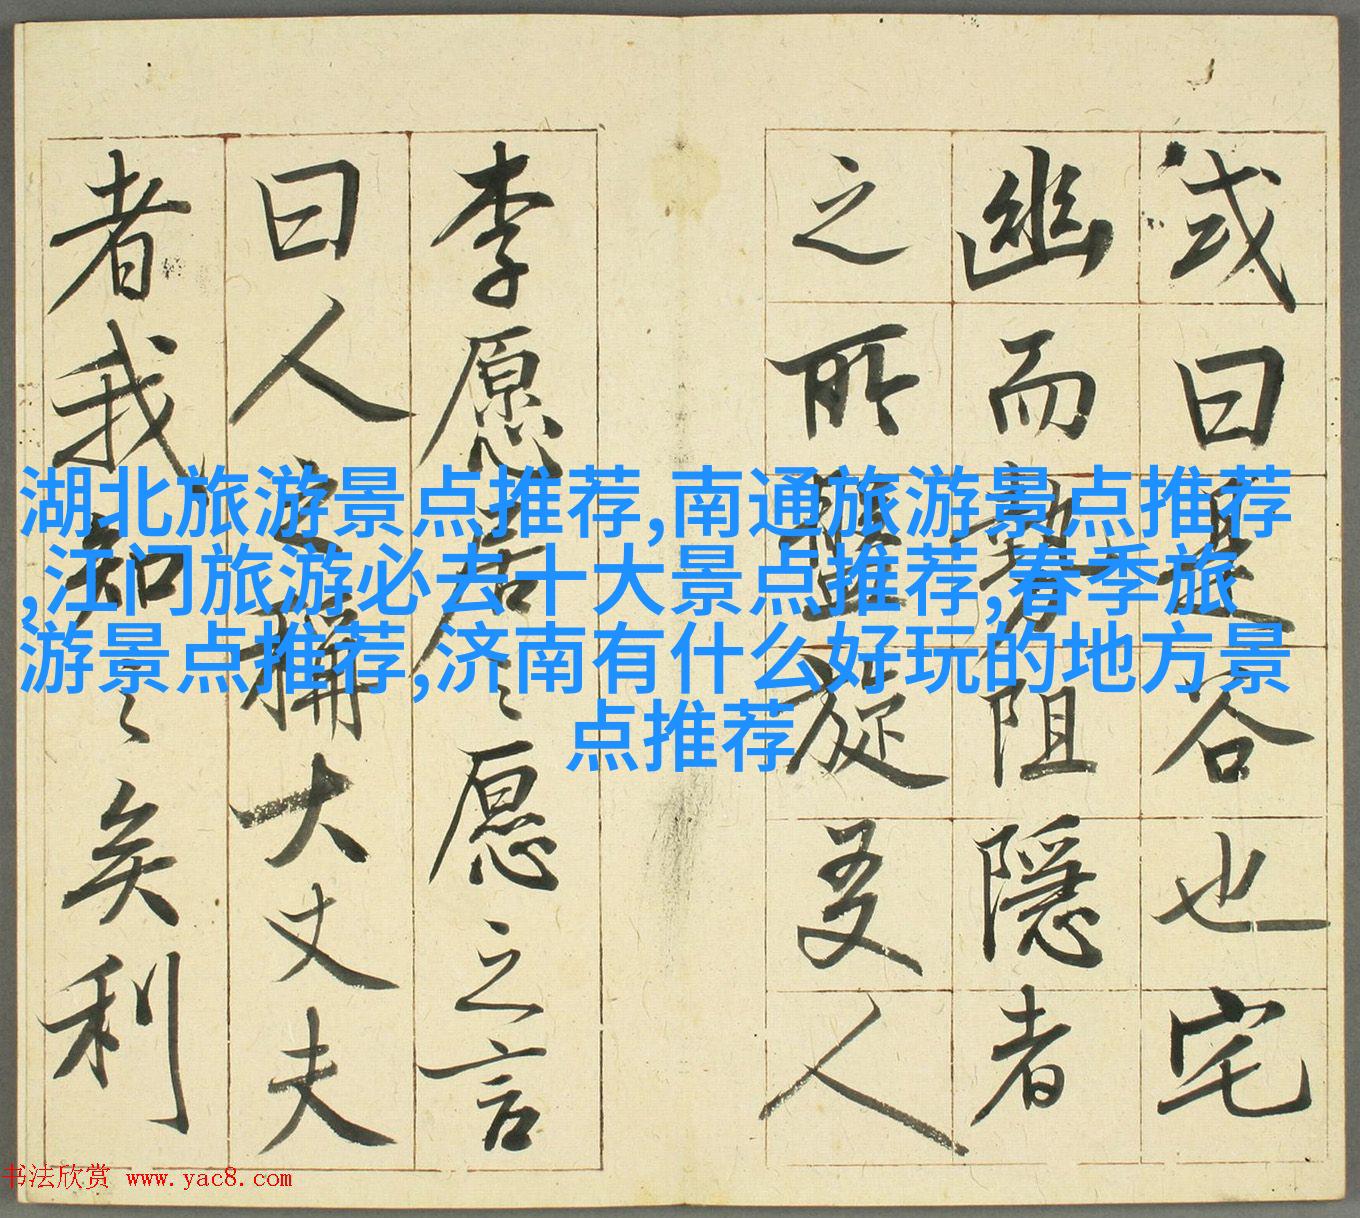 或曰是谷也宅
幽而勢阻隱者
之所盤旋友人
李愿居之愿之言
曰人之稱大丈夫
者我知之矣利
湖北旅游景点推荐,南通旅游景点推荐
,江门旅游必去十大景点推荐,春季旅
游景点推荐,济南有什么好玩的地方景
点推荐
书法欣赏 www.yac8.com